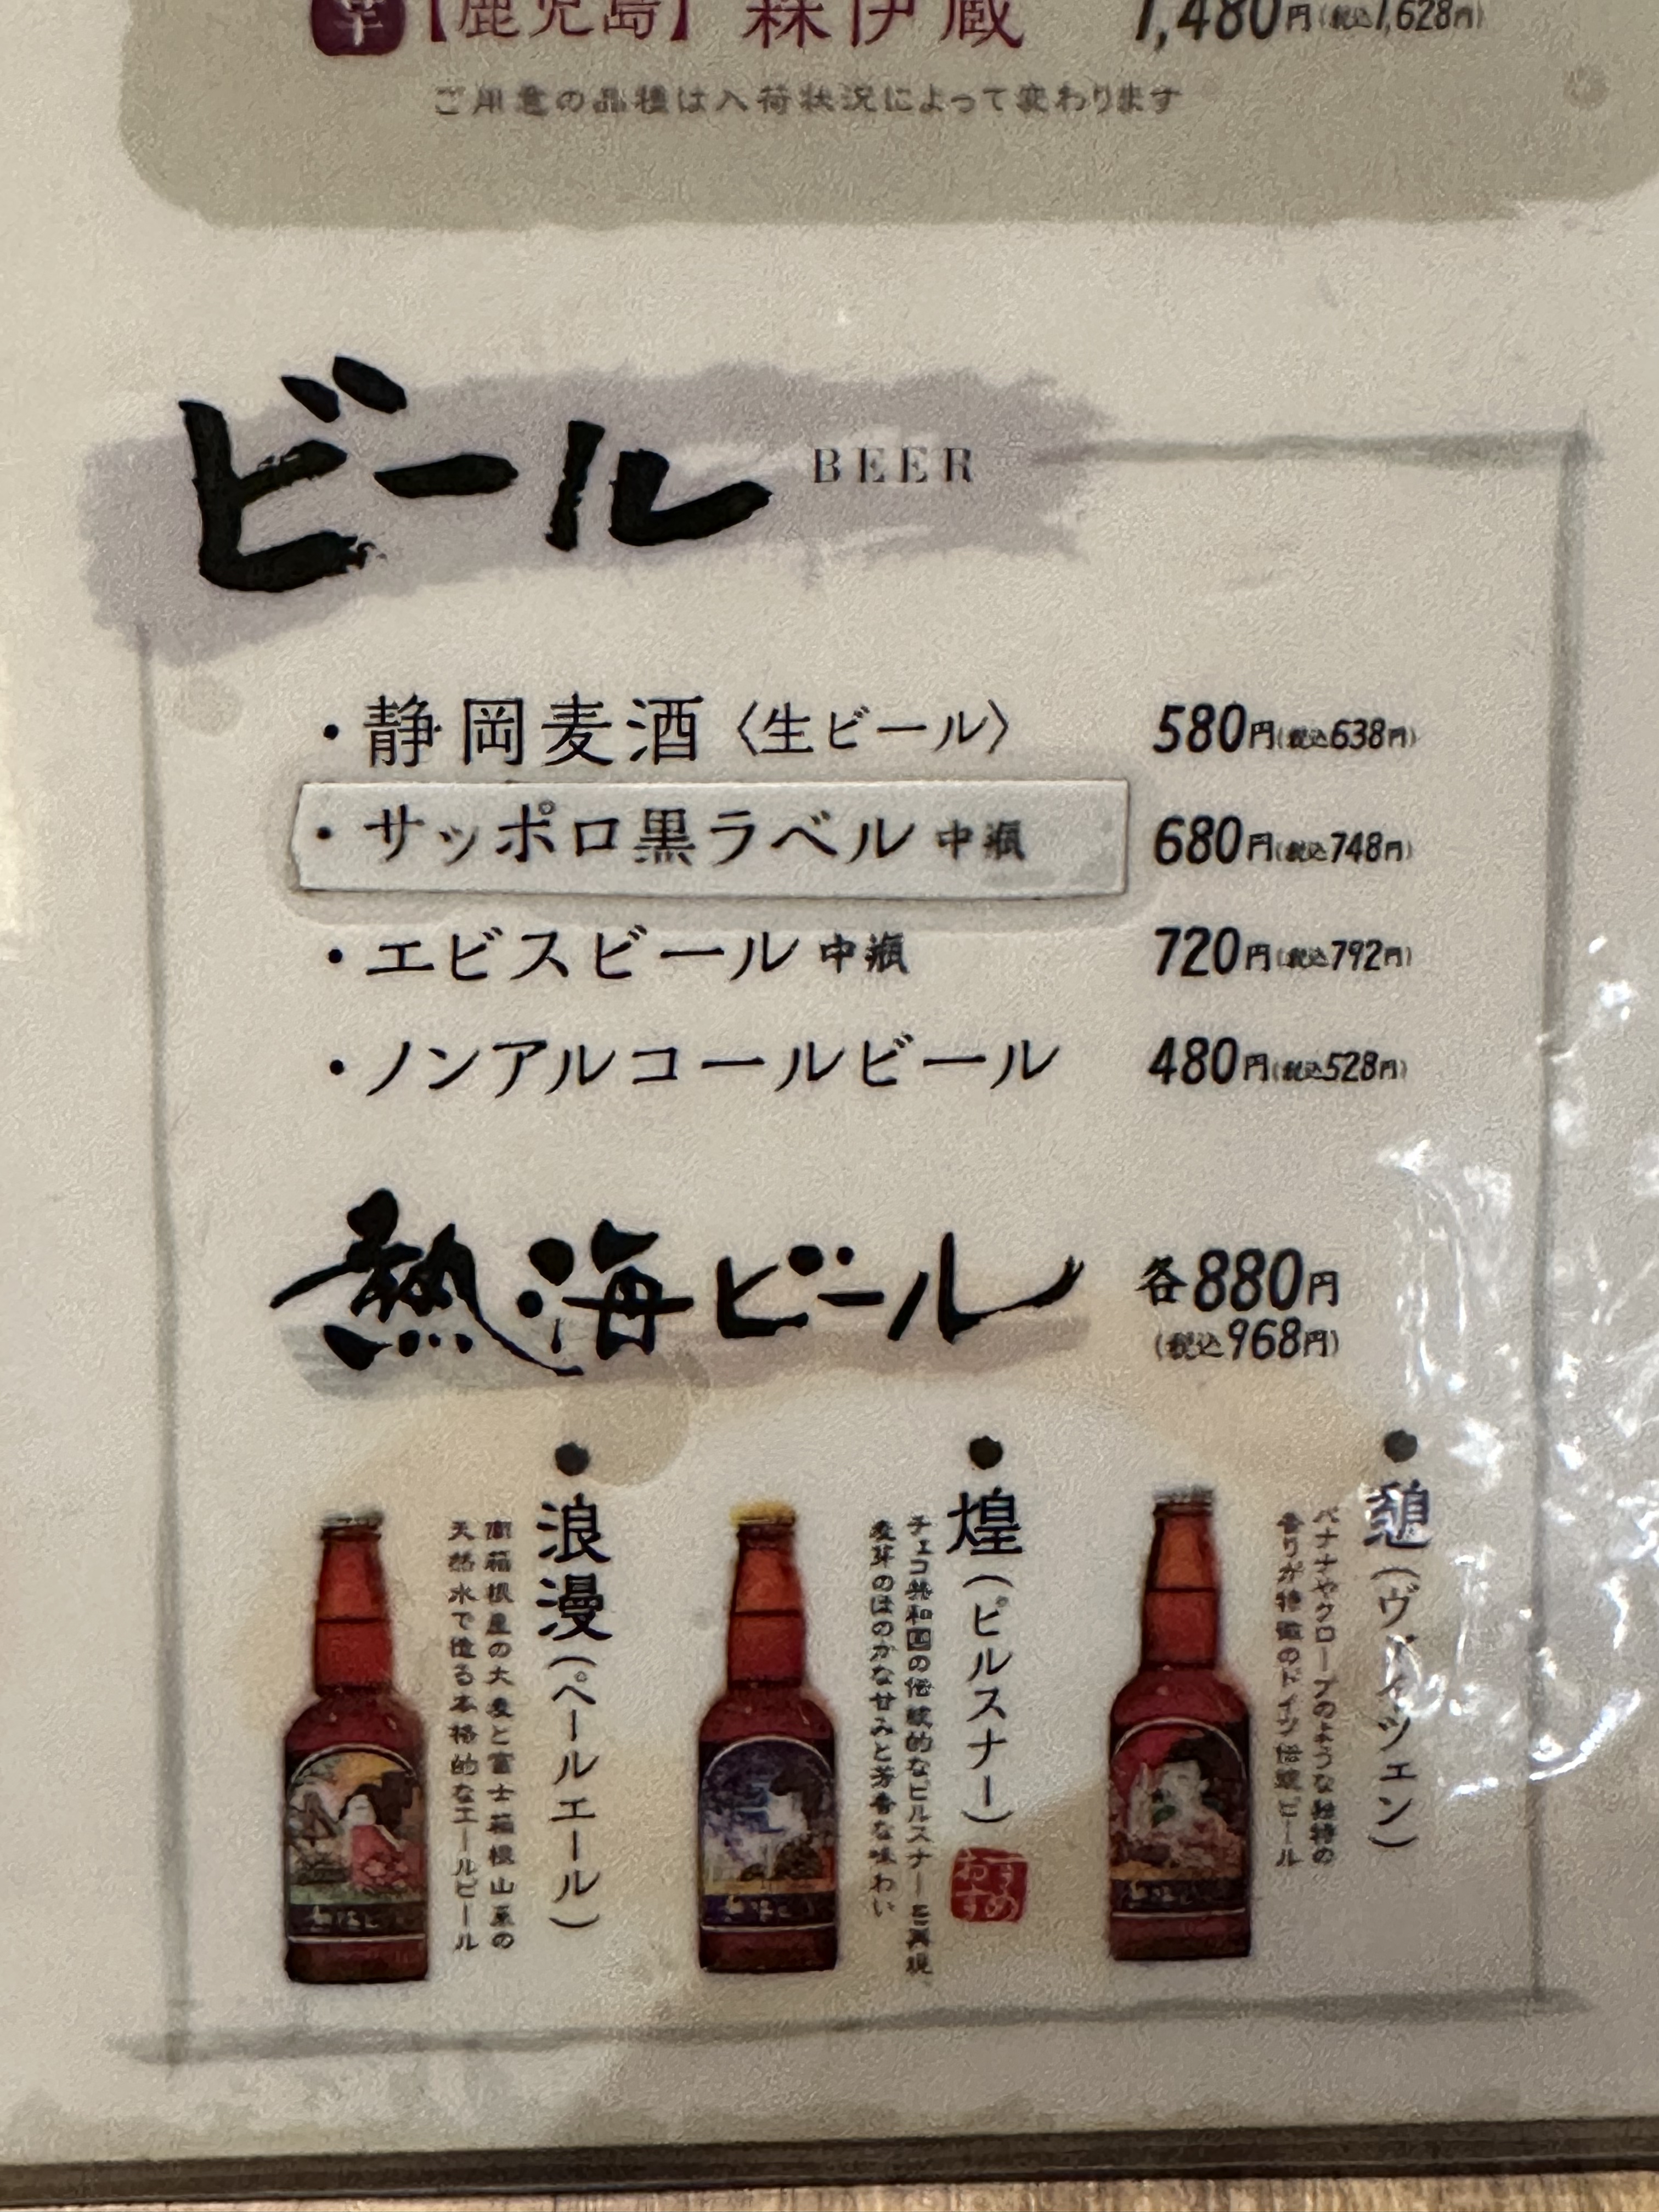 芋【鹿児島】森伊蔵 1,480円(税込1,628円)
ご用意の品種は入荷状況によって変わります
ビール BEER
・静岡麦酒〈生ビール〉 580円(税込638円)
・サッポロ黒ラベル 中瓶 680円(税込748円)
・エビスビール 中瓶 720円(税込792円)
・ノンアルコールビール 480円(税込528円)
熱海ビール 各880円
(税込968円)
●憩(ヴァイツェン)
バナナやクローブのような独特の
香りが特徴のドイツ伝統ビール
●煌(ピルスナー)
おすすめ
チェコ共和国の伝統的なピルスナーを再現、
麦芽のほのかな甘みと芳香な味わい
●浪漫(ペールエール)
南箱根産の大麦と富士箱根山系の
天然水で造る本格的なエールビール